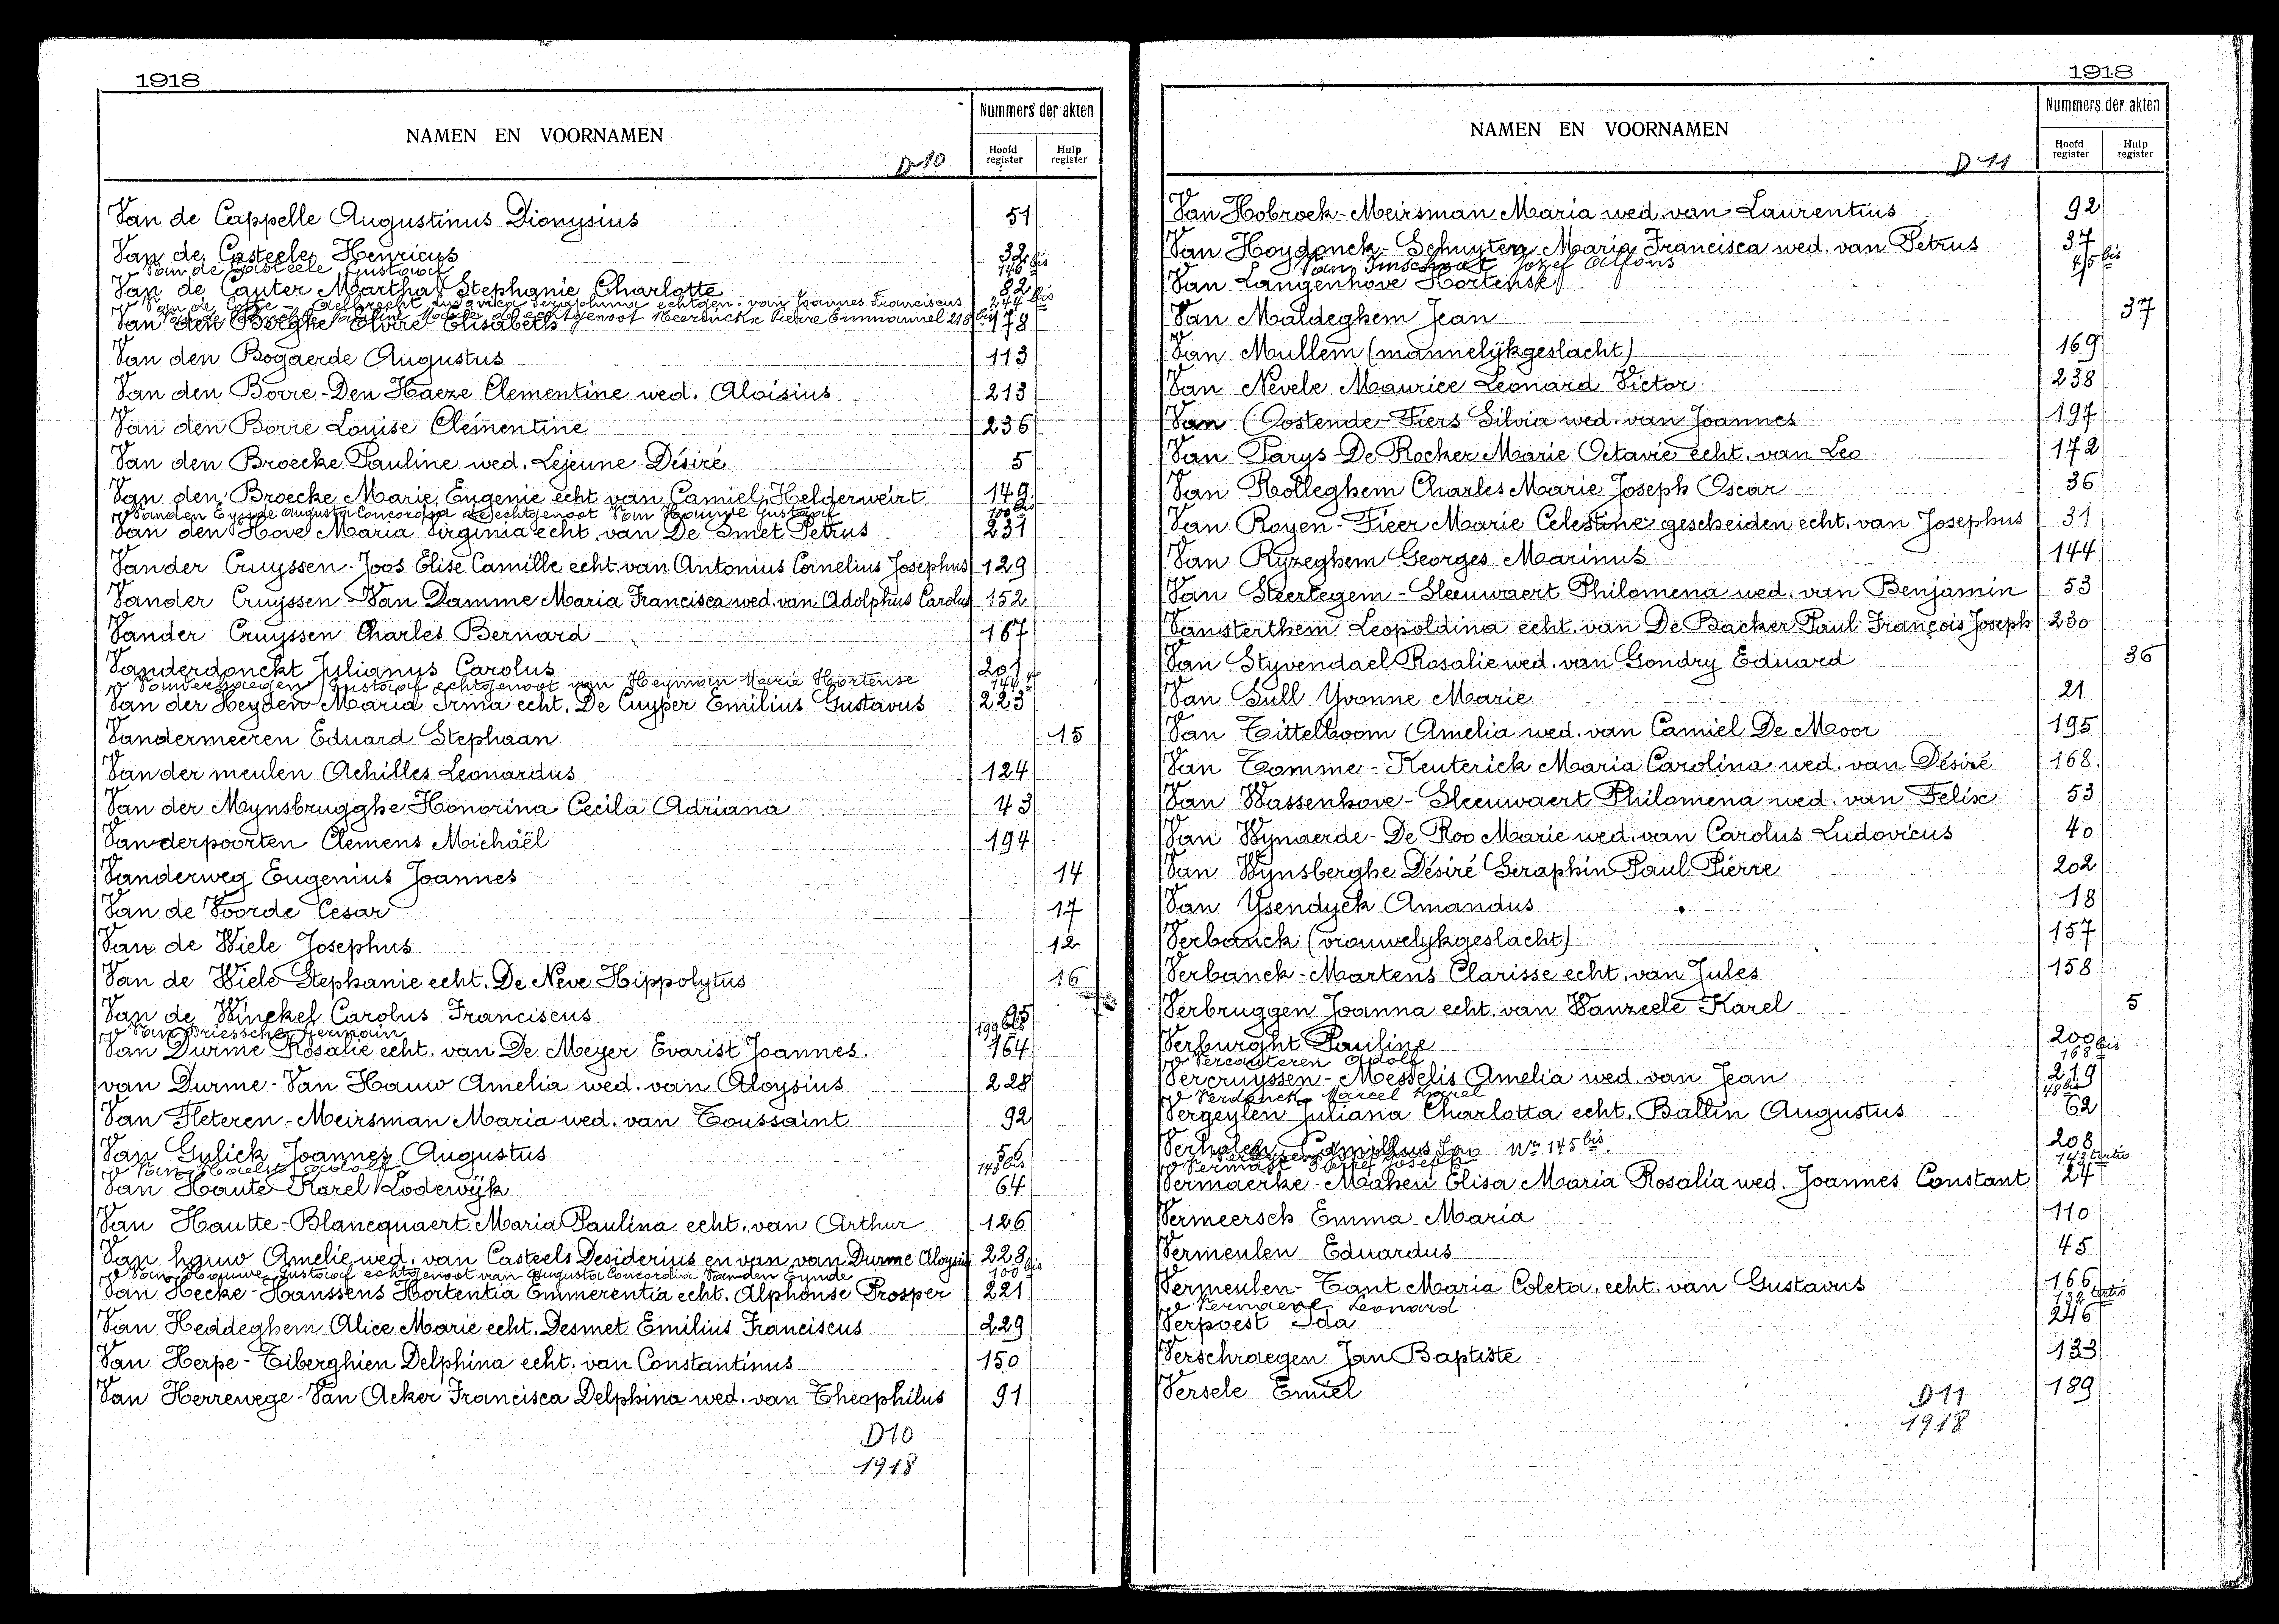 1918
NAMEN EN VOORNAMEN
Nummers der akten
Hoofd register
Hulp register
D 10
Van de Cappelle Augustinus Dionysius 51
Van de Casteele Henricus 32
Van de Casteele Gustaaf 146 bis
Van de Cauter Martha Stephanie Charlotte 82
Van de Ludovica Seraphina echtgen. van Joannes Franciscus 244 bis
Pauline echtgenoot Pierre Emmanuel 218 bis
Van den Berghe Elvire Elisabeth 178
Van den Bogaerde Augustus 113
Van den Borre-Den Haeze Clementine wed. Aloisius 213
Van den Borre Louise Clémentine 236
Van den Broecke Pauline wed. Lejeune Désiré 5
Van den Broecke Marie Eugenie echt van Camiel Helderweirt 149
Vanden Eynde Augusta Concordia echtgenoot Van Hauwe Gustaaf 100 bis
Van den Hove Maria Virginia echt. van De Smet Petrus 231
Vander Cruyssen-Joos Elise Camille echt. van Antonius Cornelius Josephus 129
Vander Cruyssen-Van Damme Maria Francisca wed. van Adolphus Carolus 152
Vander Cruyssen Charles Bernard 167
Vanderdonckt Julianus Carolus 201
Gustaaf echtgenoot van Heyman Marie Hortense 144
Van der Heyden Maria Irma echt. De Cuyper Emilius Gustavus 223
Vandermeeren Eduard Stephaan 15
Van der meulen Achilles Leonardus 124
Van der Mynsbrugghe Honorina Cecila Adriana 43
Vanderpoorten Clemens Michaël 194
Vanderweg Eugenius Joannes 14
Van de Voorde Cesar 17
Van de Wiele Josephus 12
Van de Wiele Stephanie echt. De Neve Hippolytus 16
Van de Winckel Carolus Franciscus 65
Van Driessche Germain 199 bis
Van Durme Rosalie echt. van De Meyer Evarist Joannes. 164
van Durme-Van Hauw Amelia wed. van Aloysius 228
Van Fleteren-Meirsman Maria wed. van Toussaint 92
Van Gulick Joannes Augustus 56
Van Adolf 143 bis
Van Haute Karel Lodewijk 64
Van Hautte-Blancquaert Maria Paulina echt. van Arthur 126
Van hauw Amelie wed. van Casteels Desiderius en van van Durme Aloysius 228
Van Hauwe Gustaaf echtgenoot van Augusta Concordia Vanden Eynde 100 bis
Van Hecke-Hanssens Hortentia Emmerentia echt. Alphonse Prosper 221
Van Heddeghem Alice Marie echt. Desmet Emilius Franciscus 229
Van Herpe-Tiberghien Delphina echt. van Constantinus 150
Van Herrewege-Van Acker Francisca Delphina wed. van Theophilus 91
D10
1918
1918
NAMEN EN VOORNAMEN
Nummers der akten
Hoofd register
Hulp register
D 11
Van Hobroek-Meirsman Maria wed. van Laurentius 92
Van Hoydonck-Schuyten Maria Francisca wed. van Petrus 37
Van Imschoot Jozef Alfons bis
Van Langenhove Hortense 45
Van Maldeghem Jean 37
Van Mullem (mannelijkgeslacht) 169
Van Nevele Maurice Leonard Victor 238
Van Oostende-Fiers Silvia wed. van Joannes 197
Van Parys-De Rocker Marie Octavie echt. van Leo 172
Van Rolleghem Charles Marie Joseph Oscar 36
Van Royen-Fieer Marie Celestine gescheiden echt. van Josephus 31
Van Ryzeghem Georges Marinus 144
Van Steertegem-Sleeuwaert Philomena wed. van Benjamin 53
Vansterthem Leopoldina echt. van De Backer Paul François Joseph 230
Van Styvendael Rosalie wed. van Gondry Eduard 36
Van Sull Yvonne Marie 21
Van Tittelboom Amelia wed. van Camiel De Moor 195
Van Tomme-Keuterick Maria Carolina wed. van Désiré 168.
Van Wassenhove-Sleeuwaert Philomena wed. van Felix 53
Van Wynaerde-De Roo Marie wed. van Carolus Ludovicus 40
Van Wynsberghe Désiré Seraphin Paul Pierre 202
Van Ysendyck Amandus 18
Verbanck (vrouwelijkgeslacht) 157
Verbanck-Martens Clarisse echt. van Jules 158
Verbruggen Joanna echt. van Vanzeele Karel 5
Verburght Pauline 200
Vercauteren Adolf 168 bis
Vercruyssen-Messelis Amelia wed. van Jean 219
Verdonck Marcel Karel 48 bis
Vergeylen Juliana Charlotta echt. Ballin Augustus 62
Camillus No 145 bis. 208
Vermast Pieter Joseph 143 tertio
Vermaerke-Mahen Elisa Maria Rosalia wed. Joannes Constant 24
Vermeersch Emma Maria 110
Vermeulen Eduardus 45
Vermeulen-Tant Maria Coleta, echt. van Gustavus 166
Leonard 132 tertio
Verpoest Ida 246
Verschraegen Jan Baptiste 133
Versele Emiel 189
D11
1918